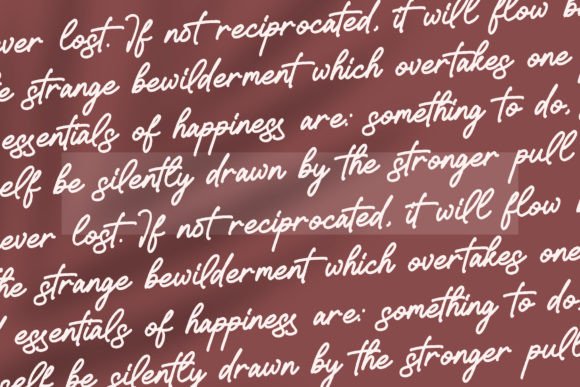 ever lost. If not reciprocated, it will flow b
e strange bewilderment which overtakes one
essentials of happiness are: something to do,
elf be silently drawn by the stronger pull
ever lost. If not reciprocated, it will flow
the strange bewilderment which overtakes one
essentials of happiness are: something to do,
self be silently drawn by the stronger pull